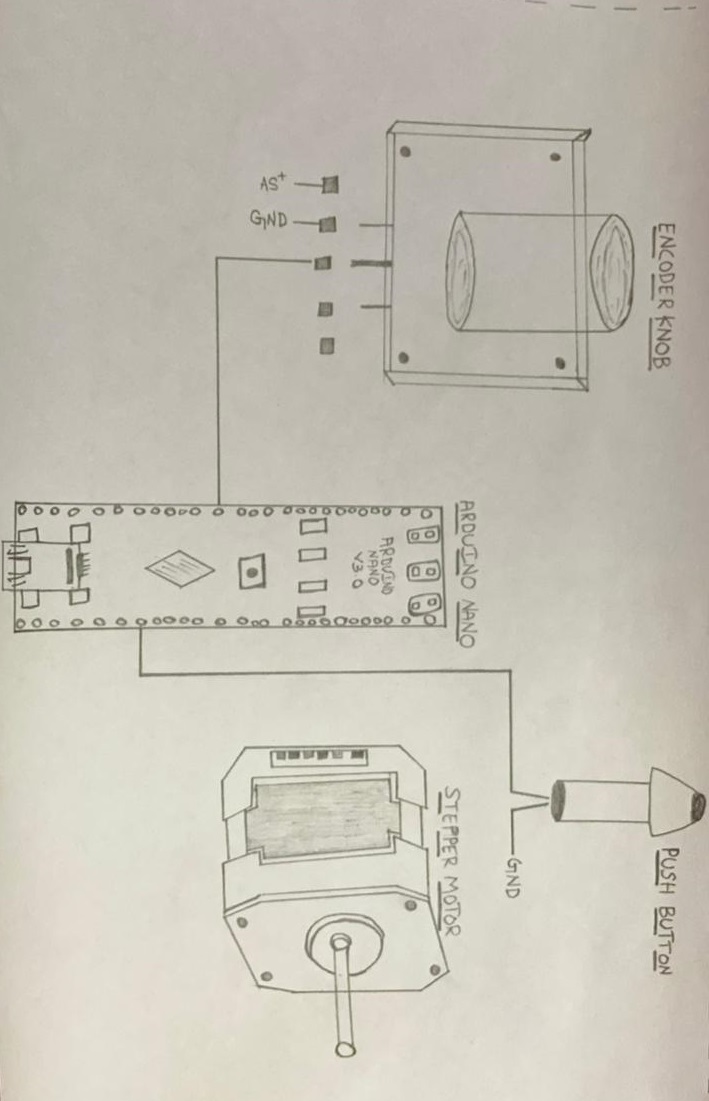 ENCODER KNOB
AS⁺
GND
ARDUINO NANO
ARDUINO
NANO
V3.0
PUSH BUTTON
GND
STEPPER MOTOR